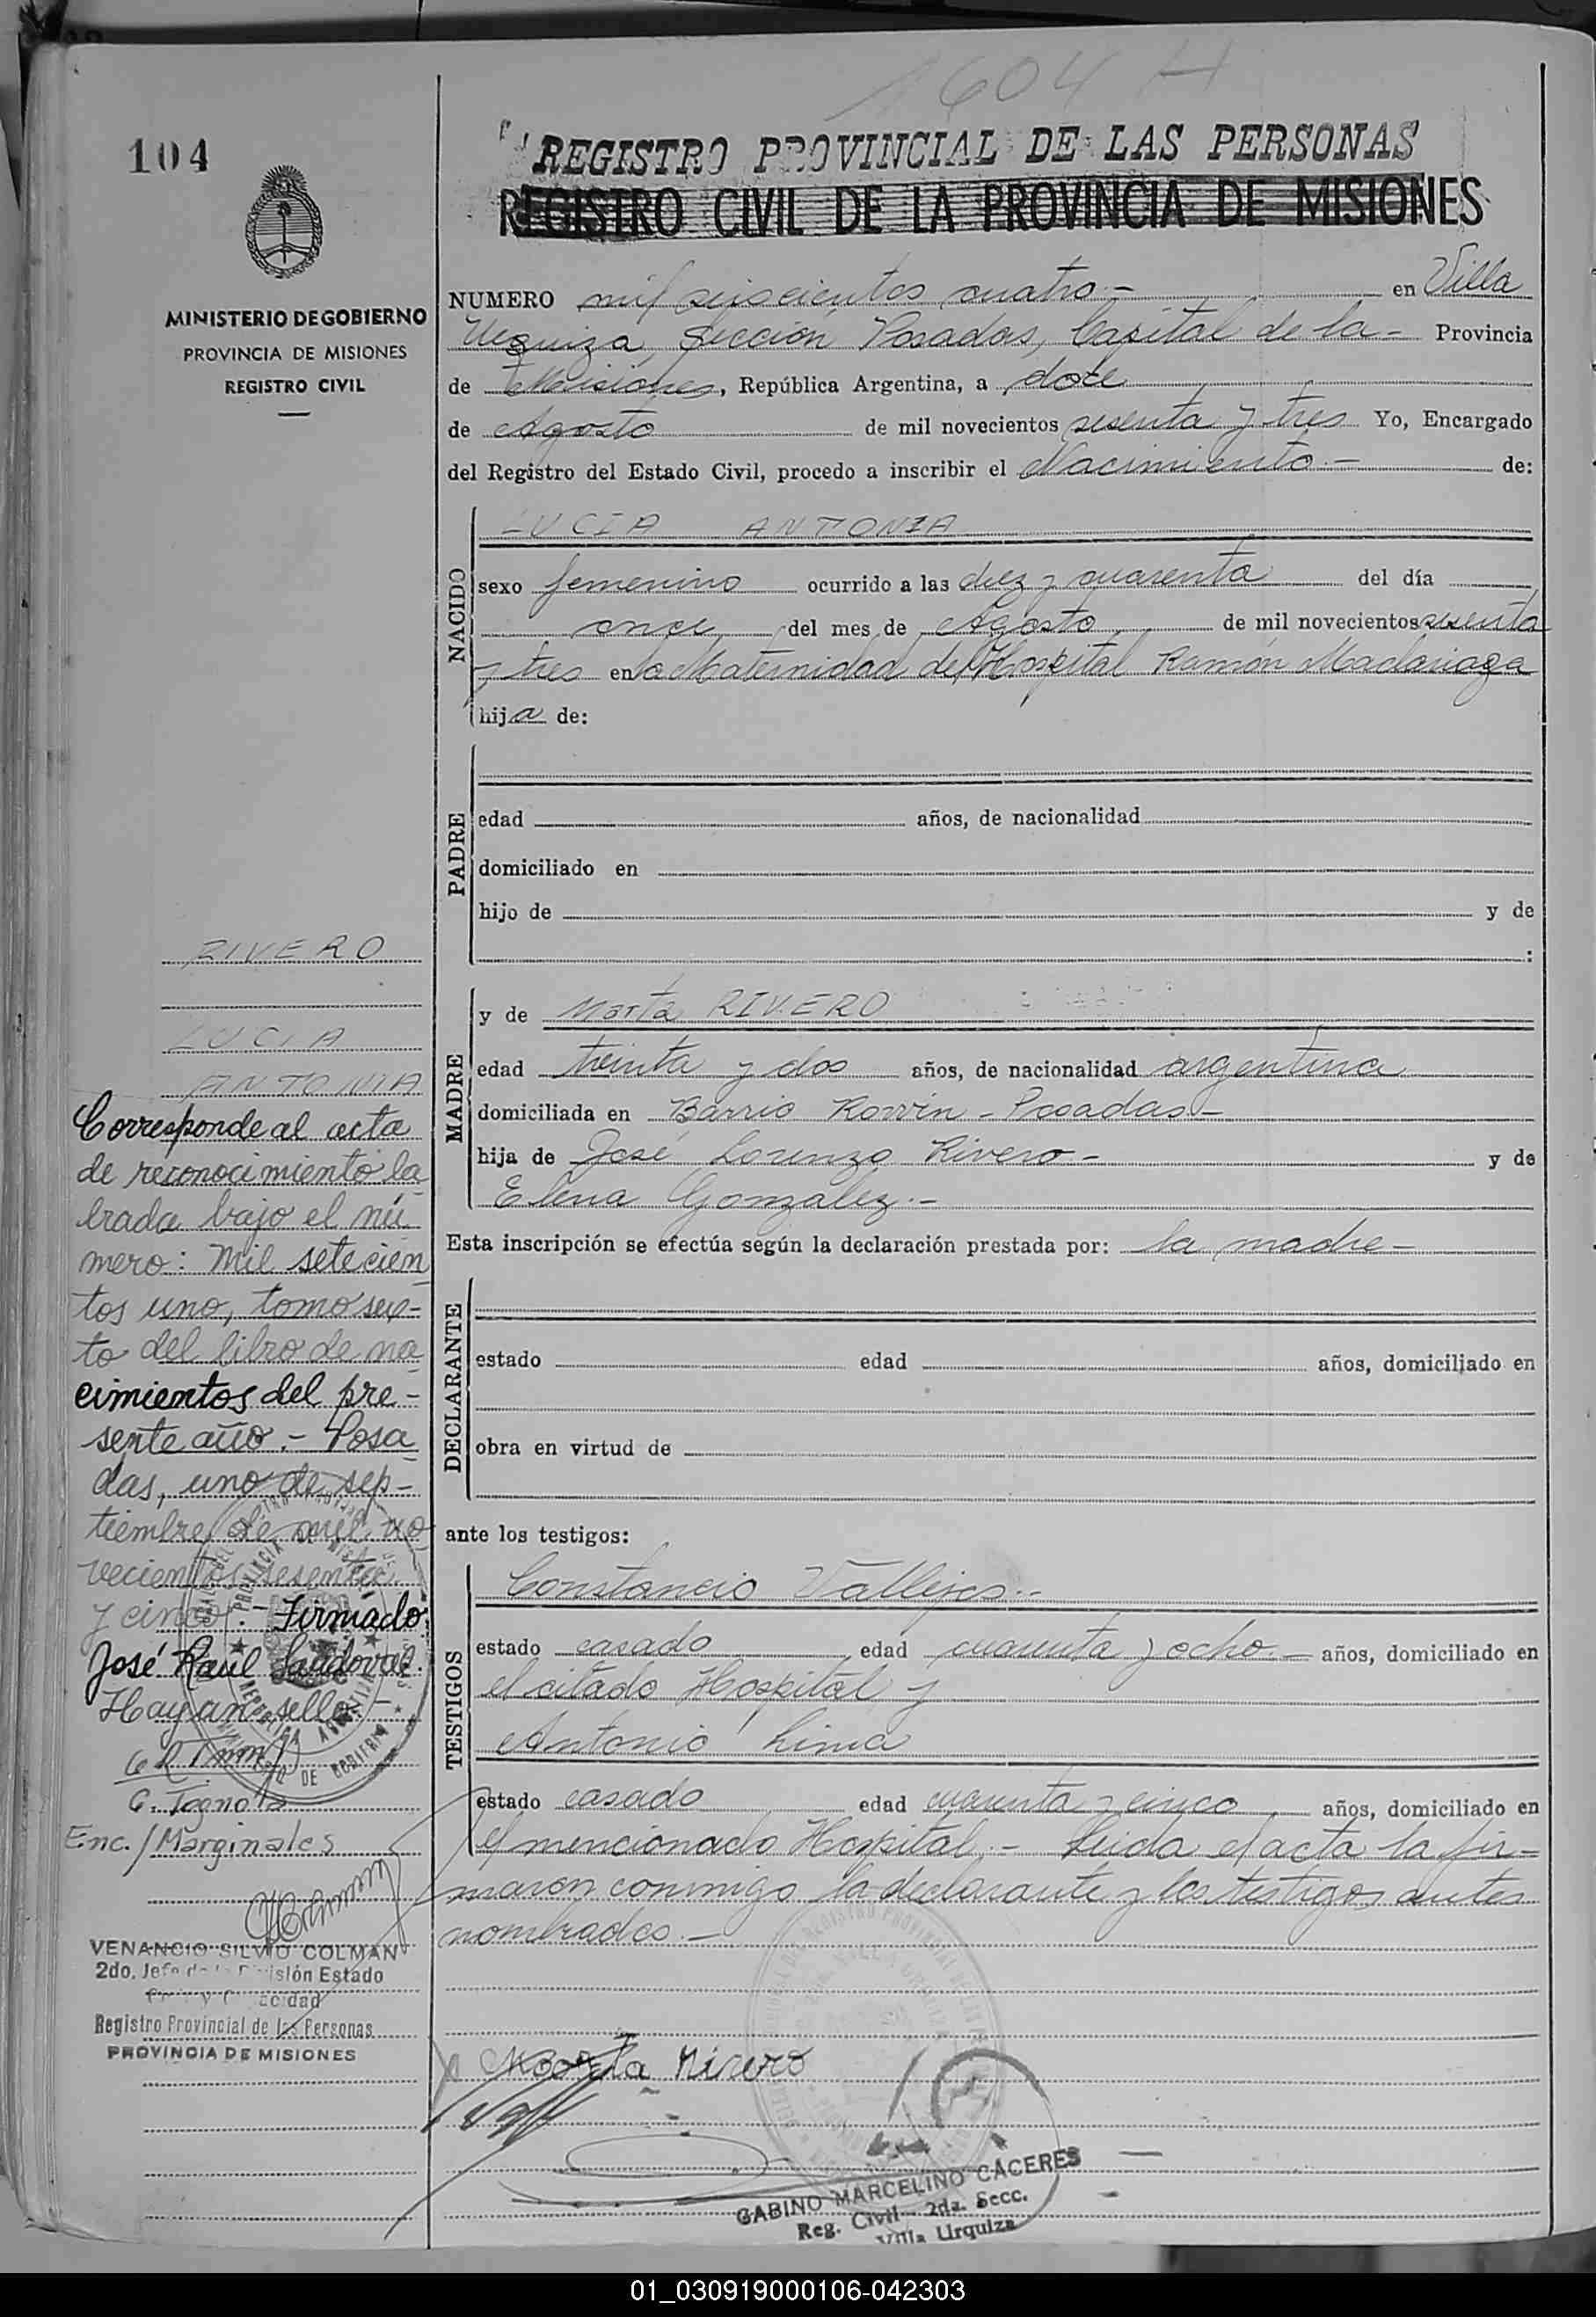 1604 H
104
REGISTRO PROVINCIAL DE LAS PERSONAS
REGISTRO CIVIL DE LA PROVINCIA DE MISIONES
MINISTERIO DE GOBIERNO
PROVINCIA DE MISIONES
REGISTRO CIVIL
NUMERO mil seiscientos cuatro.- en Villa
Urquiza, Sección Posadas, Capital de la - Provincia
de Misiones, República Argentina, a doce
de Agosto de mil novecientos sesenta y tres Yo, Encargado
del Registro del Estado Civil, procedo a inscribir el Nacimiento.- de:
NACIDO
LUCIA ANTONIA
sexo femenino ocurrido a las diez y cuarenta del día
once del mes de Agosto de mil novecientos sesenta
y tres en la Maternidad del Hospital Ramón Madariaga
hija de:
PADRE
edad años, de nacionalidad
domiciliado en
hijo de y de
:
MADRE
y de Marta RIVERO
edad treinta y dos años, de nacionalidad argentina
domiciliada en Barrio - Posadas -
hija de José Lorenzo Rivero - y de
Elena Gonzalez.-
Esta inscripción se efectúa según la declaración prestada por: la madre -
DECLARANTE
estado edad años, domiciliado en
obra en virtud de
ante los testigos:
TESTIGOS
Constancio Vallejos.-
estado casado edad cuarenta y ocho.- años, domiciliado en
el citado Hospital y
Antonio Lima
estado casado edad cuarenta y cinco años, domiciliado en
el mencionado Hospital.- Leida el acta la fir-
maron conmigo la declarante y los testigos antes
nombrados.-
Marta Rivero
GABINO MARCELINO CACERES
Reg. Civil - 2da. Secc.
Villa Urquiza
RIVERO
LUCIA
ANTONIA
Corresponde al acta
de reconocimiento la
brada bajo el nú
mero: Mil setecien
tos uno, tomo sex-
to del libro de na
cimientos del pre-
sente año.- Posa
das, uno de sep-
tiembre de mil no
vecientos sesenta
y cinco.- Firmado:
José Raúl Sandoval.
Hay un sello.-
Enc./Marginales
VENANCIO SILVIO COLMAN
2do. Jefe de la División Estado
Civil y Capacidad
Registro Provincial de las Personas
PROVINCIA DE MISIONES
01_030919000106-042303